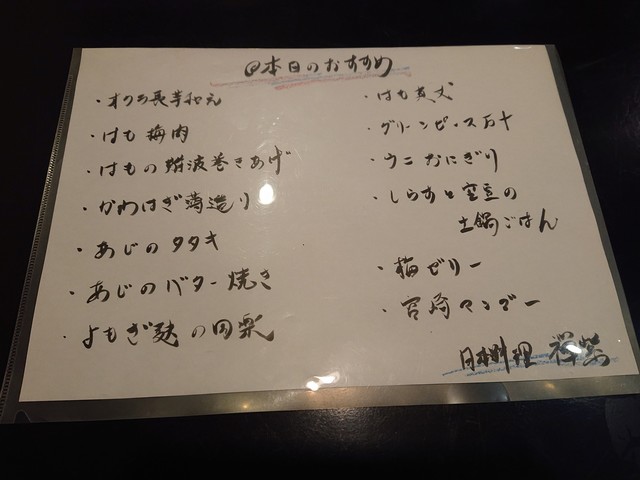 本日のおすすめ
・オクラ長芋和え
・はも梅肉
・はもの難波巻きあげ
・かわはぎ薄造り
・あじのタタキ
・あじのバター焼き
・よもぎ麩の田楽
・はも真丈
・グリーンピース万十
・ウニおにぎり
・しらすと空豆の
土鍋ごはん
・梅ゼリー
・宮崎マンゴー
日本料理